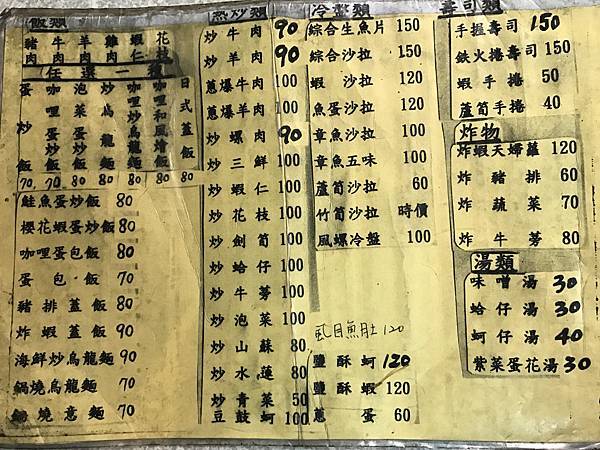 飯類
豬肉 牛肉 羊肉 雞肉 蝦仁 花枝
任選一種
蛋炒飯 70
咖哩蛋炒飯 70
泡菜蛋炒飯 80
炒烏龍麵 80
咖哩炒烏龍麵 80
咖哩和風燴飯 80
日式蓋飯 80
鮭魚蛋炒飯 80
櫻花蝦蛋炒飯 80
咖哩蛋包飯 80
蛋包飯 70
豬排蓋飯 80
炸蝦蓋飯 90
海鮮炒烏龍麵 90
鍋燒烏龍麵 70
鍋燒意麵 70
熱炒類
炒牛肉 90
炒羊肉 90
蔥爆牛肉 100
蔥爆羊肉 100
炒螺肉 90
炒三鮮 100
炒蝦仁 100
炒花枝 100
炒劍筍 100
炒蛤仔 100
炒牛蒡 100
炒泡菜 100
炒山蘇 80
炒水蓮 80
炒青菜 50
豆鼓蚵 100
冷盤類
綜合生魚片 150
綜合沙拉 150
蝦沙拉 120
魚蛋沙拉 120
章魚沙拉 100
章魚五味 100
蘆筍沙拉 60
竹筍沙拉 時價
風螺冷盤 100
虱目魚肚 120
鹽酥蚵 120
鹽酥蝦 120
蔥蛋 60
壽司類
手握壽司 150
鐵火捲壽司 150
蝦手捲 50
蘆筍手捲 40
炸物
炸蝦天婦蘿 120
炸豬排 60
炸蔬菜 70
炸牛蒡 80
湯類
味噌湯 30
蛤仔湯 30
蚵仔湯 40
紫菜蛋花湯 30